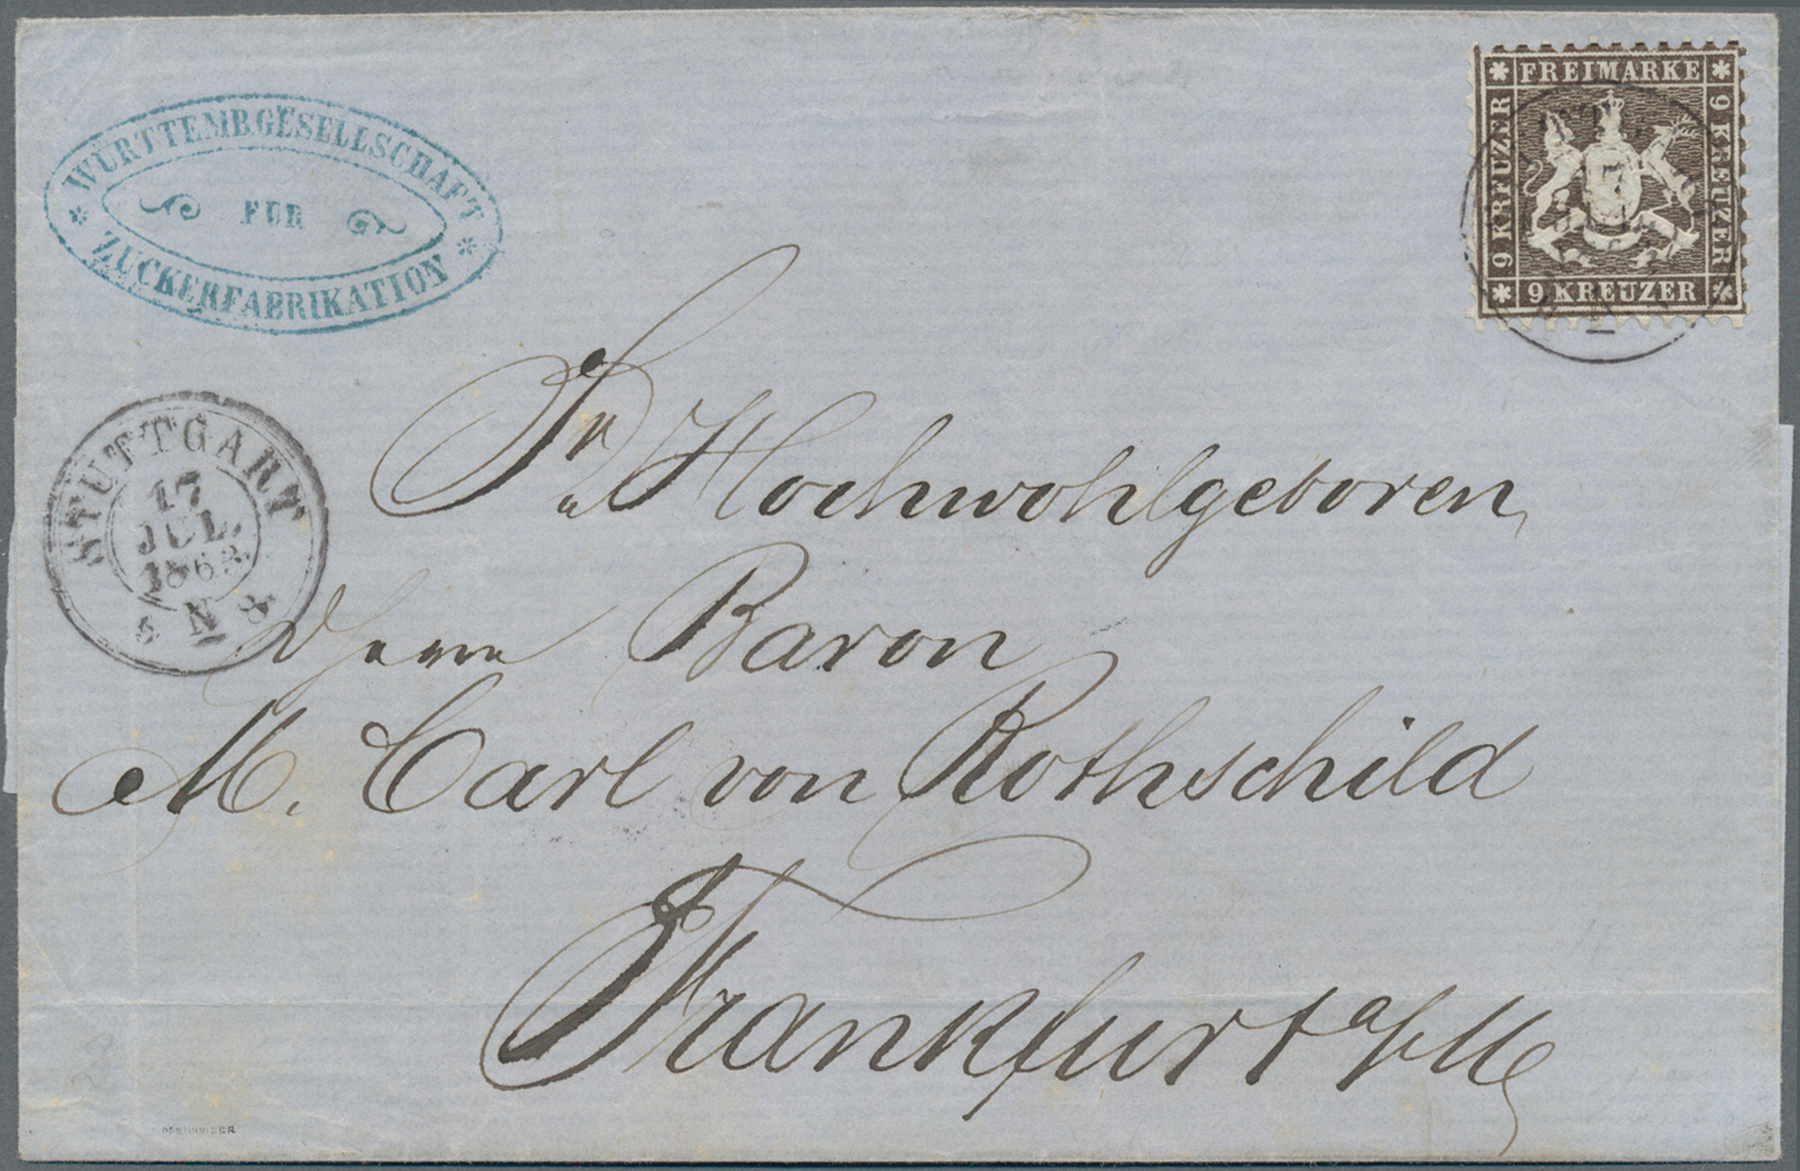 WÜRTTEMB. GESELLSCHAFT
FÜR
ZUCKERFABRIKATION
FREIMARKE
9 KREUZER
9 KREUZER
9 KREUZER
STUTTGART
17
JUL.
1863.
N
Sr Hochwohlgeboren
Herrn Baron
M. Carl von Rothschild
Frankfurt a/M